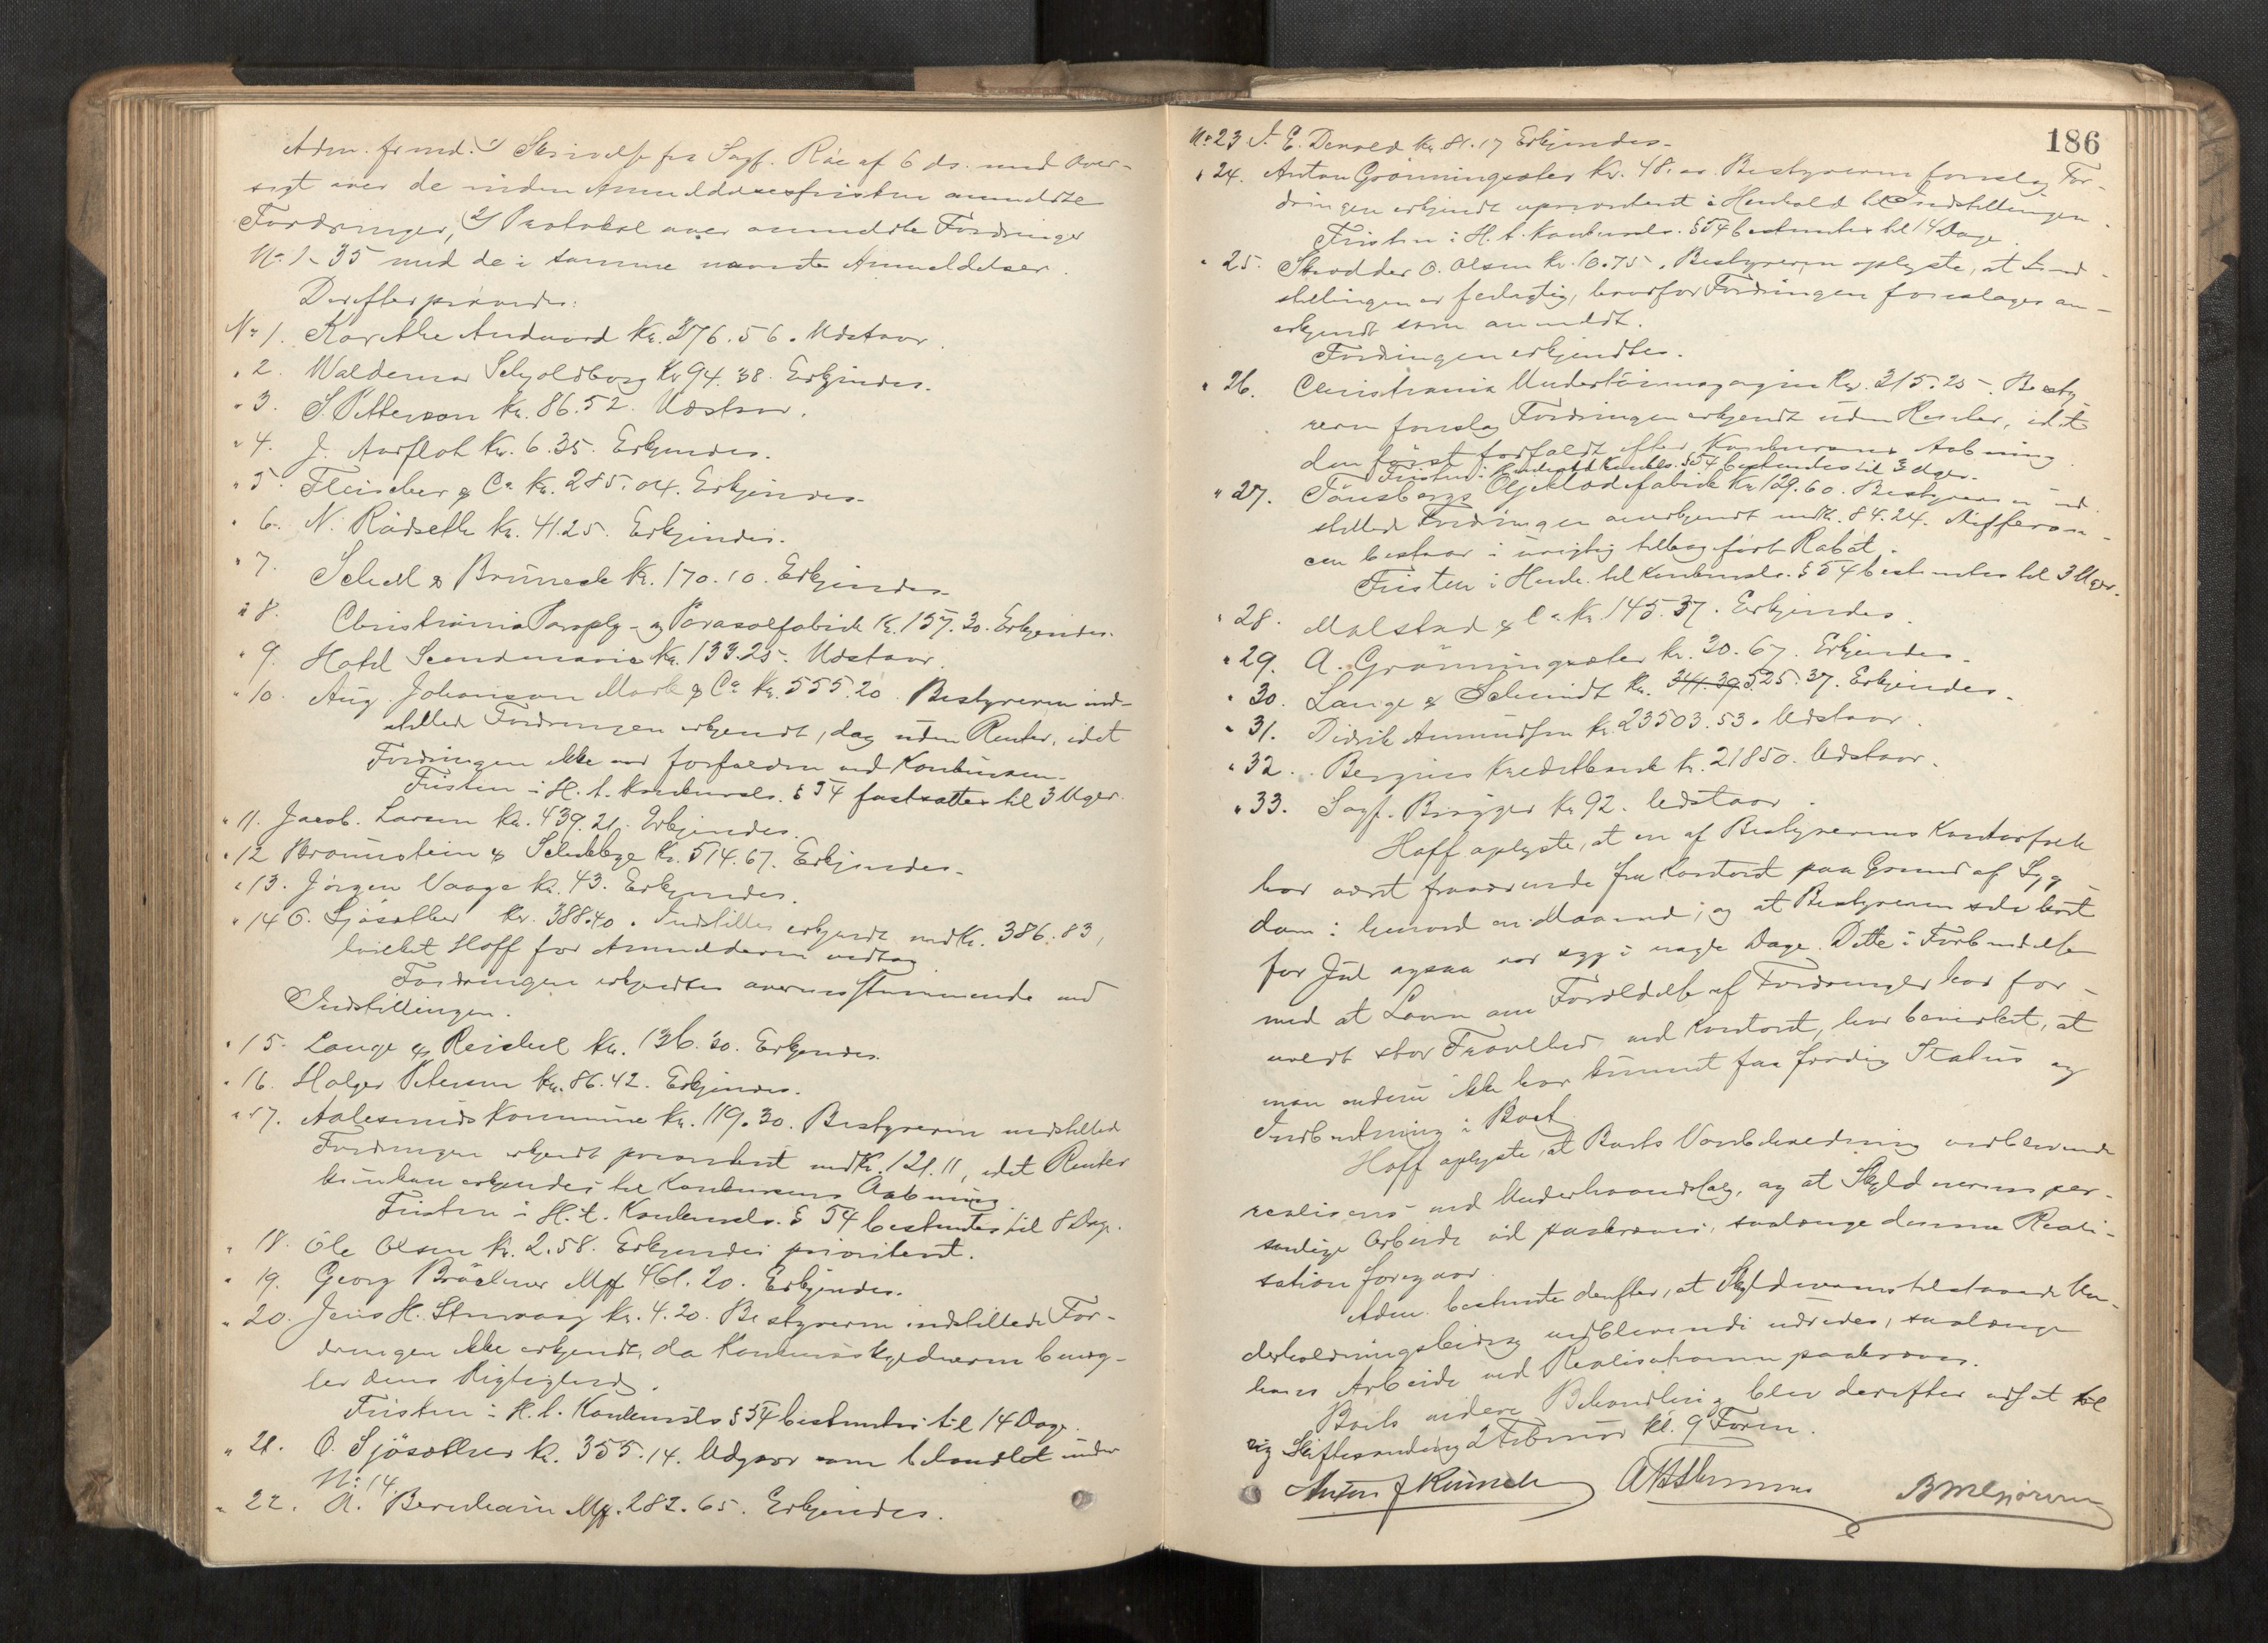 Adm. freml. 1) Skrivelse fra Sagf. Råe af 6 ds. med Over-
sigt over de inden Anmeldelsesfristen anmeldte
Fordringer, 2) Protokol over anmeldte Fordringer
No. 1-35 med de i samme nævnte Anmeldelser.
Derefter prøvedes:
No. 1. Karethe Andvord Kr. 376.56. Udstaar.
" 2. Waldemar Schjoldborg Kr 94.38. Erkjendes.
" 3. S. Petterson Kr. 86.52. Udstaar.
" 4. J. Aarflot Kr. 6.35. Erkjendes.
" 5. Fleischer & Co Kr. 285.04. Erkjendes.
" 6. N. Rådseth Kr. 41.25. Erkjendes.
" 7. Schell & Brünech Kr. 170.10. Erkjendes.
" 8. Christiania Paraply- og Parasolfabrik Kr. 157.30. Erkjendes.
" 9. Hotel Scandinavie Kr. 133.25. Udstaar.
" 10. Aug. Johanson Mark & Co Kr. 555.20. Bestyreren ind-
stillede Fordringen erkjendt, dog uden Renter, idet
Fordringen ikke var forfalden ved Konkursen.
Fristen i H. t. Konkursls. § 54 fastsattes til 3 Uger.
" 11. Jacob Larsen Kr. 439.21. Erkjendes.
" 12 Braunstein & Kr. 514.67. Erkjendes.
" 13. Jörgen Vaage Kr. 43. Erkjendes.
" 14 O. Sjösæther Kr. 388.40. Indstilles erkjendt med Kr. 386.83,
hvilket Hoff for Anmelderen vedtog
Fordringen erkjendtes overensstemmende med
Indstillingen.
" 15. Lange & Reichel Kr. 136.30. Erkjendes.
" 16. Holger Petersen Kr. 86.42. Erkjendes.
" 17. Aalesunds Kommune Kr. 119.30. Bestyreren indstilled
Fordringen erkjendt prioritert med Kr. 121.11, idet Renter
kun kan erkjendes til Konkursens Aabning.
Fristen i H. t. Konkursls. § 54 bestemtes til 8 Dage.
" 18. Ole Olsen Kr. 2.58. Erkjendes prioritert.
" 19. Georg Brückner Mk 461.20. Erkjendes.
" 20. Jens H. Kr. 4.20. Bestyreren indstillede For-
dringen ikke erkjendt, da Konkursskyldneren benæg-
ter dens Rigtighed.
Fristen i H. t. Konkursls § 54 bestemtes til 14 Dage.
" 21. O. Sjösæther Kr. 355.14. Udgaar som behandlet under
No. 14.
" 22. A. Bernheim Mk. 282.65. Erkjendes.
186
No. 23 J. E. Devold Kr. 81.17 Erkjendes.
" 24. Anton Grönningsæter Kr. 48. Bestyreren foreslog For-
dringen erkjendt uprioritert i Henhold til Indstillingen.
Fristen i H. t. Konkursls. § 54 bestemtes til 14 Dage.
" 25. Skrædder O. Olsen Kr. 10.75. Bestyreren oplyste, at Ind-
stillingen er feilagtig, hvorfor Fordringen foreslages an-
erkjendt som anmeldt.
Fordringen erkjendtes.
" 26. Christiania Undertöimagazin Kr. 315.25. Besty-
reren foreslog Fordringen erkjendt uden Renter, idet
den först forfaldt efter Konkursens Aabning.
Fristen i Henhold Konkls. § 54 bestemtes til 3 Uger.
" 27. Tönsbergs Oljeklædefabrik Kr 129.60. Bestyreren ind-
stillede Fordringen anerkjendt med Kr. 84.24. Differen-
cen bestaar i urigtig tilbageført Rabat.
Fristen i Henh. til Konkursls. § 54 bestemtes til 3 Uger.
" 28. Malstad & Co Kr. 145.37. Erkjendes.
" 29. A. Grönningsæter Kr. 30.67. Erkjendes.
" 30. Lange & Schmidt Kr. 341.39 525.37. Erkjendes.
" 31. Didrik Amundsen Kr. 23503.53. Udstaar.
" 32. Bergens Kreditbank Kr. 21850. Udstaar.
" 33. Sagf. Brügger Kr 92. Udstaar.
Hoff oplyste, at en af Bestyrerens Kontorfolk
har været fraværende fra Kontoret paa Grund af Syg-
dom i henved en Maaned; og at Bestyreren selv först
for Jul ogsaa var syg i nogle Dage. Dette i Forbindelse
med at Loven om Forældelse af Fordringer har for-
voldt stor Travelhed ved Kontoret, har bevirket, at
man endnu ikke har kunnet faa færdig Status og
Indberetning i Boet.
Hoff oplyste at Boets Varebeholdning vedblivende
realiseres ved Underhaandssalg, og at Skyldnerens per-
sonlige Arbeide vil paakræves, saalænge denne Reali-
sation foregaar.
Adm. bestemte derefter, at Skyldnerens tilstaaede Un-
derholdningsbidrag vedblivende udredes, saalænge
hans Arbeide ved Realisationen paakræves.
Boets videre Behandling blev derefter udsat til
Skiftesamling 2 Februar kl. 9 Form.